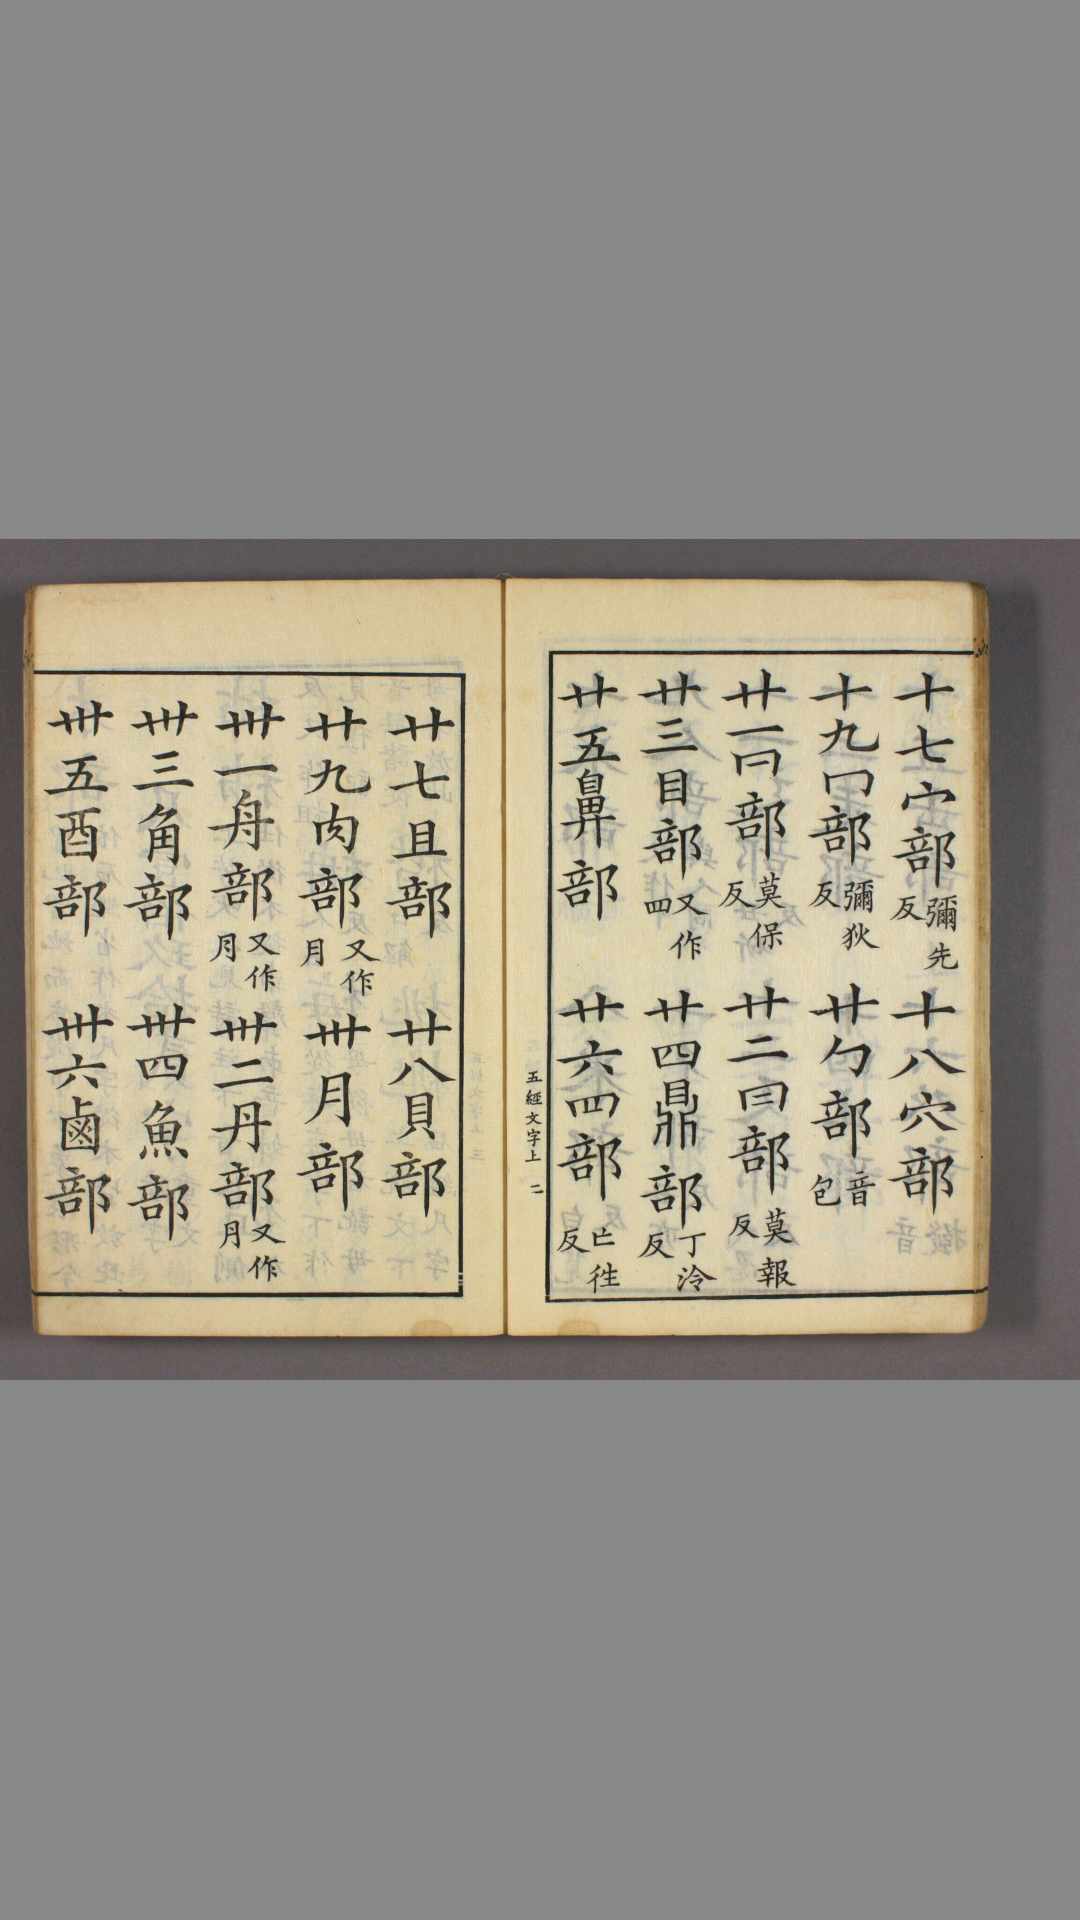 十七宀部彌先反 十八穴部
十九冂部彌狄反 廿勹部音包
廿一冃部莫保反 廿二曰部莫報反
廿三目部又作罒 廿四鼎部丁泠反
廿五鼻部 廿六罒部亡往反
五經文字上 二
廿七且部 廿八貝部
廿九肉部又作月 卅月部
卅一舟部又作月 卅二丹部又作月
卅三角部 卅四魚部
卅五酉部 卅六鹵部